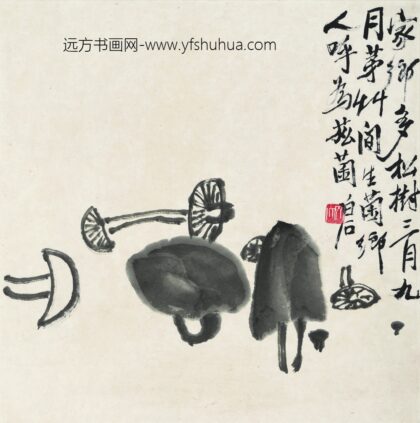 远方书画网-www.yfshuhua.com
家鄉多松樹三月九
月茅艸間生菌鄉
人呼為菌白石